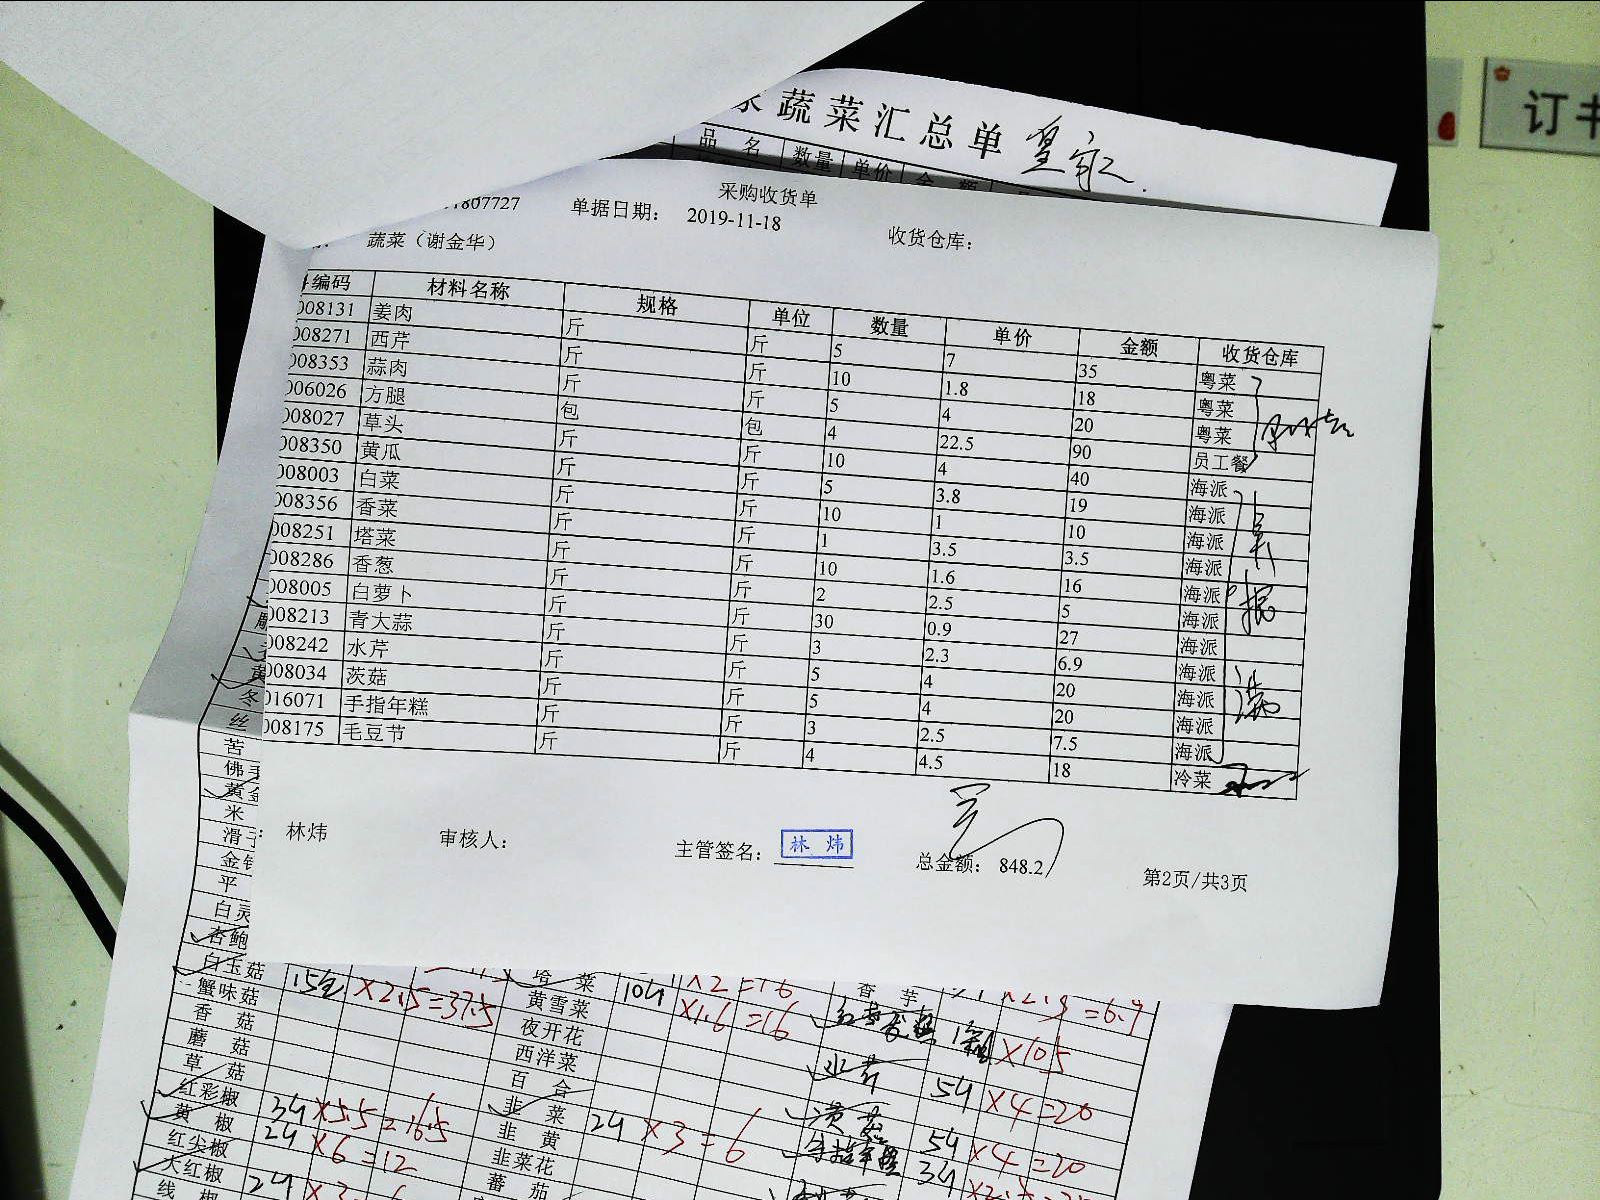 蔬菜汇总单 皇家
品 名 数量 单价 金 额
订书
采购收货单
1807727 单据日期： 2019-11-18 收货仓库：
蔬菜（谢金华）
编码 材料名称 规格 单位 数量 单价 金额 收货仓库
008131 姜肉 斤 斤 5 7 35 粤菜
008271 西芹 斤 斤 10 1.8 18 粤菜
008353 蒜肉 斤 斤 5 4 20 粤菜
006026 方腿 包 包 4 22.5 90 员工餐
008027 草头 斤 斤 10 4 40 海派
008350 黄瓜 斤 斤 5 3.8 19 海派
008003 白菜 斤 斤 10 1 10 海派
008356 香菜 斤 斤 1 3.5 3.5 海派
008251 塔菜 斤 斤 10 1.6 16 海派
008286 香葱 斤 斤 2 2.5 5 海派
008005 白萝卜 斤 斤 30 0.9 27 海派
008213 青大蒜 斤 斤 3 2.3 6.9 海派
008242 水芹 斤 斤 5 4 20 海派
008034 茨菇 斤 斤 5 4 20 海派
016071 手指年糕 斤 斤 3 2.5 7.5 海派
008175 毛豆节 斤 斤 4 4.5 18 冷菜
林炜 审核人： 主管签名： 林 炜 总金额： 848.2 第2页/共3页
黄
冬
丝
苦
佛手
黄金
米
滑子
金针
平
白灵
杏鲍
白玉菇 塔 菜 ×2=16 香 芋
蟹味菇 15包 ×2.5=37.5 黄雪菜 10斤 ×1.6=16
香 菇 夜开花 ×105
蘑 菇 西洋菜 水芹 5斤 ×4=20
草 菇 百 合
红彩椒 3斤 ×5.5=16.5 韭 菜 2斤 ×3=6 茨菇 5斤 ×4=20
黄 椒 2斤 ×6=12 韭 黄 手指年糕 3斤
红尖椒 韭菜花
大红椒 2斤 ×3= 蕃 茄
线 椒